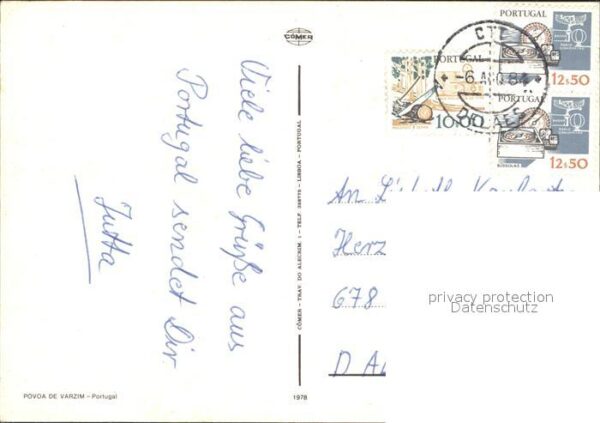 CÓMER
Viele liebe Grüße aus
Portugal sendet Dir
Jutta
POVOA DE VARZIM – Portugal
CÓMER – TRAV. DO ALECRIM, 1 – TELF. 328775 – LISBOA – PORTUGAL
1978
PORTUGAL
10.00
PORTUGAL
12$50
12$50
CTT
-6.
84
An
Herz
678
D
privacy protection
Datenschutz